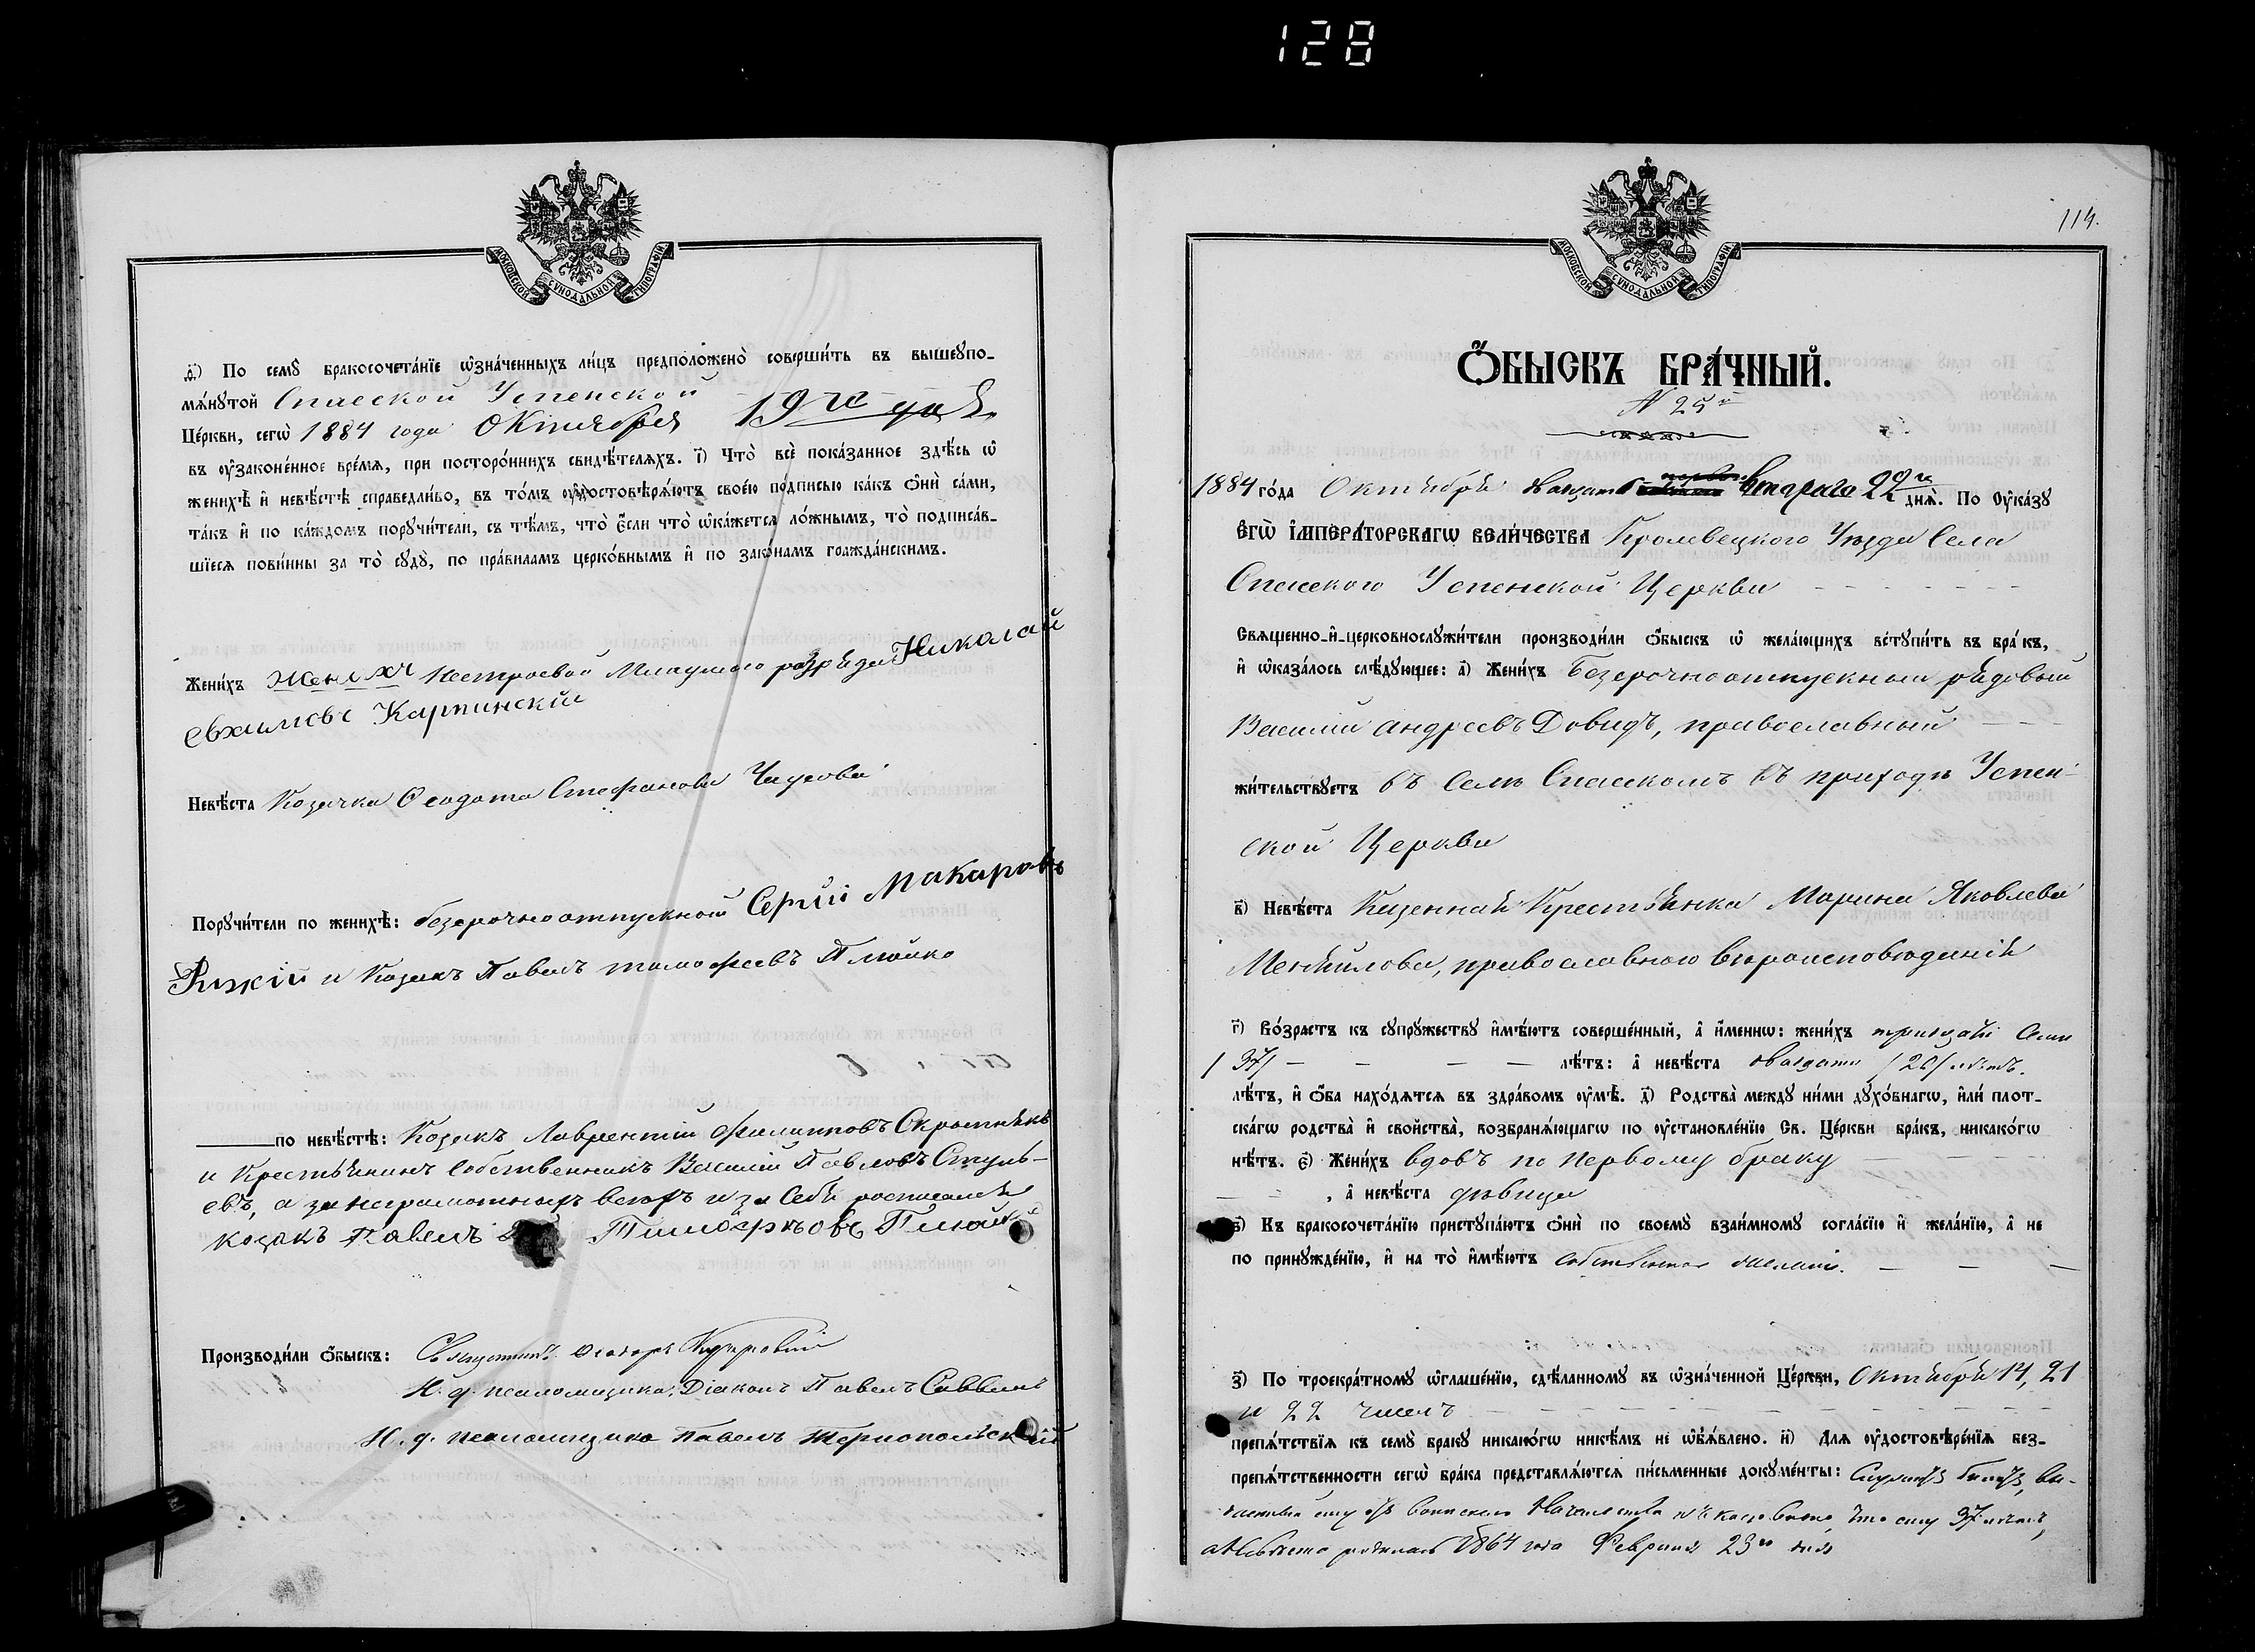 128
МОСКОВСКОЙ СѴНОДАЛЬНОЙ ТИПОГРАФІИ
ѳ҃) По семꙋ̀ бракосочета́нїе ѡ҆зна́ченныхъ ли́цъ предположено̀ соверши́ть въ вышеꙋпо-
мѧ́нꙋтой Спасской Успенской
Це́ркви, сегѡ̀ 1884 года Октября 19го дня
въ ᲂу҆зако́ненное вре́мѧ, при посторо́ннихъ свидѣ́телѧхъ. і҃) Что̀ всѐ пока́занное здѣ́сь ѡ҆
женихѣ̀ и҆ невѣ́стѣ справедли́во, въ то́мъ ᲂу҆достовѣрѧ́ютъ свое́ю подписью ка́къ ѻ҆нѝ са́ми,
та́къ и҆ по ка́ждомъ порꙋчи́тели, съ тѣ́мъ, что̀ є҆́сли что̀ ѡ҆ка́жетсѧ ло́жнымъ, то̀ подписа́в-
шїесѧ пови́нны за то̀ сꙋдꙋ̀, по пра́виламъ церко́внымъ и҆ по зако́намъ гражда́нскимъ.
Жени́хъ Женихъ нестроевой Младшаго разряда Николай
Евхимовъ Карпинскій
Невѣ́ста Козачка Ѳеодота Стефанова
Порꙋчи́тели по женихѣ̀: безсрочноотпускной Сергій Макаровъ
Рижкій и Козакъ Павелъ тимофеевъ Плюйко
по невѣ́стѣ: Козакъ Лаврентій Филипповъ
и Крестьянинъ собственникъ Василій Павловъ
евъ, а за неграмотныхъ всехъ и за себя росписался
козакъ Павелъ Тимофѣевъ Плюйко
Производи́ли ѻ҆́быскъ: Священникъ Ѳеодоръ
И. д. псаломщика, Діаконъ Павелъ Саввинъ
И. д. псаломщика Павелъ Тернопольскій
114.
МОСКОВСКОЙ СѴНОДАЛЬНОЙ ТИПОГРАФІИ
Ѻ҆́БЫСКЪ БРА́ЧНЫЙ.
N 25й
1884 го́да Октября двадцать втораго 22го днѧ̀. По ᲂу҆ка́зꙋ
Є҆ГѠ̀ И҆МПЕРА́ТОРСКАГѠ ВЕЛИ́ЧЕСТВА Кролевецкого Уезда Села
Спасского Успенской Церкви
Свѧще́нно-и҆-церковнослꙋжи́тели производи́ли ѻ҆́быскъ ѡ҆ жела́ющихъ встꙋпи́ть въ бра́къ,
и҆ ѡ҆каза́лось слѣ́дꙋющее: а҃) Жени́хъ Безсрочноотпускной рядовой
Василій андреевъ Довидъ, православный
жи́тельствꙋетъ въ Селѣ Спасскомъ въ приходѣ Успен-
ской Церкви
в҃) Невѣ́ста Казенная Крестьянка Марина Яковлева
православного вѣроисповѣданія
г҃) Во́зрастъ къ сꙋпрꙋ́жествꙋ и҆мѣ́ютъ соверше́нный, а҆ и҆́меннѡ: жени́хъ тридцать Семь
/37/ лѣ́тъ: а҆ невѣ́ста двадцать /20/ лѣтъ.
лѣ́тъ, и҆ ѻ҆́ба нахо́дѧтсѧ въ здра́вомъ ᲂу҆мѣ̀. д҃) Родства̀ междꙋ ни́ми дꙋхо́внагѡ, и҆лѝ плот-
ска́гѡ родства̀ и҆ сво́йства, возбранѧ́ющагѡ по ᲂу҆становле́нїю Св. Це́ркви бра́къ, никако́гѡ
нѣ́тъ. є҃) Жени́хъ вдовъ по первому браку
, а҆ невѣ́ста дѣвица
ѕ҃) Къ бракосочета́нїю пристꙋпа́ютъ ѻ҆нѝ по своемꙋ̀ взаи́мномꙋ согла́сїю и҆ жела́нїю, а҆ не
по принꙋжде́нїю, и҆ на то̀ и҆мѣ́ютъ собственное желаніе.
з҃) По троекра́тномꙋ ѡ҆глаше́нїю, сдѣ́ланномꙋ въ ѡ҆зна́ченной Це́ркви, Октября 14, 21
и 22 числъ
препѧ́тствїѧ къ семꙋ̀ бракꙋ никако́гѡ никѣ́мъ не ѡ҆б̾ѧ́влено. и҃) Длѧ ᲂу҆достовѣре́нїѧ без-
препѧ́тственности сегѡ̀ бра́ка представлѧ́ютсѧ пи́сьменные докꙋме́нты: билетъ, вы-
данный ему отъ воинского Начальства что ему 37 лѣтъ,
а Невѣста родилась 1864 года Февраля 23го дня